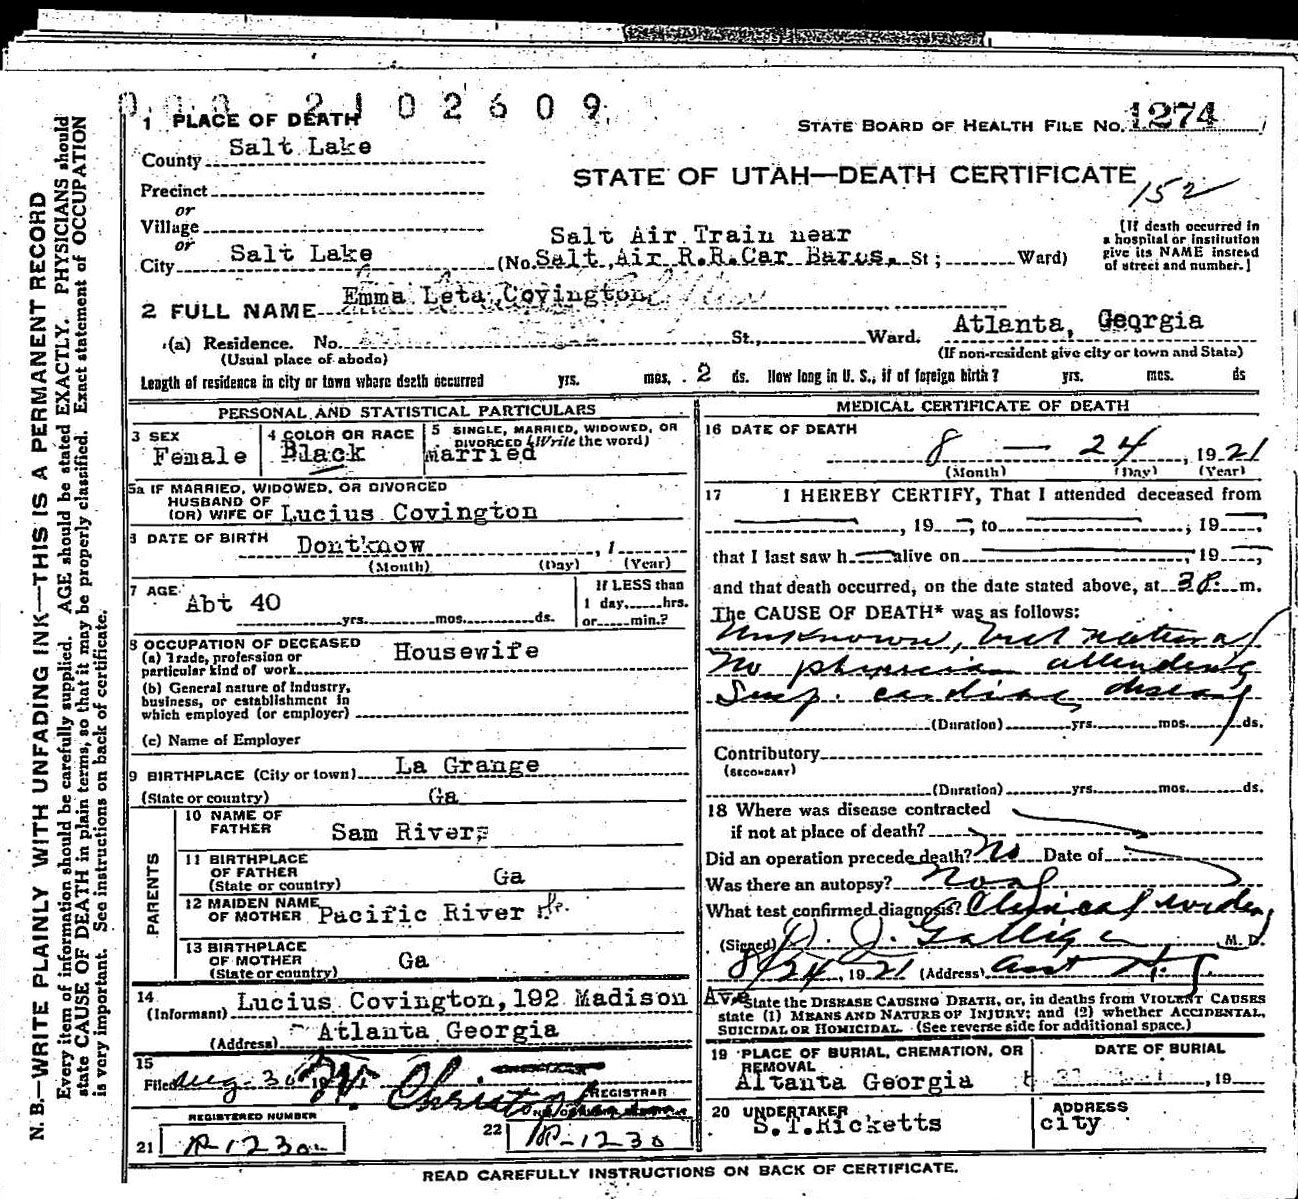 N. B.—WRITE PLAINLY WITH UNFADING INK—THIS IS A PERMANENT RECORD
Every item of information should be carefully supplied. AGE should be stated EXACTLY. PHYSICIANS should
state CAUSE OF DEATH in plain terms, so that it may be properly classified. Exact statement of OCCUPATION
is very important. See instructions on back of certificate.
2102609
1 PLACE OF DEATH
STATE BOARD OF HEALTH FILE NO. 1274
County Salt Lake
STATE OF UTAH—DEATH CERTIFICATE
152
Precinct
or
Village
or
City Salt Lake
Salt Air Train near
(No. Salt Air R.R.Car Barns. St; Ward)
[If death occurred in
a hospital or institution
give its NAME instead
of street and number.]
2 FULL NAME Emma Leta Covington
(a) Residence. No. St., Ward. Atlanta, Georgia
(Usual place of abode) (If non-resident give city or town and State)
Length of residence in city or town where death occurred yrs. mos. 2 ds. How long in U. S., if of foreign birth? yrs. mos. ds
PERSONAL AND STATISTICAL PARTICULARS
3 SEX Female
4 COLOR OR RACE Black
5 SINGLE, MARRIED, WIDOWED, OR
DIVORCED (Write the word)
Married
5a IF MARRIED, WIDOWED, OR DIVORCED
HUSBAND OF
(OR) WIFE OF Lucius Covington
6 DATE OF BIRTH Dontknow , 1
(Month) (Day) (Year)
7 AGE Abt 40 yrs. mos. ds.
If LESS than
1 day, hrs.
or min.?
8 OCCUPATION OF DECEASED
(a) Trade, profession or
particular kind of work Housewife
(b) General nature of Industry,
business, or establishment in
which employed (or employer)
(c) Name of Employer
9 BIRTHPLACE (City or town) La Grange
(State or country) Ga
PARENTS
10 NAME OF
FATHER Sam Rivers
11 BIRTHPLACE
OF FATHER
(State or country) Ga
12 MAIDEN NAME
OF MOTHER Pacific River
13 BIRTHPLACE
OF MOTHER
(State or country) Ga
14 (Informant) Lucius Covington, 192 Madison Ave
(Address) Atlanta Georgia
15
Filed Aug. 30 19 21 Christopher
REGISTRAR
REGISTERED NUMBER
21 R-1230
22 R-1230
MEDICAL CERTIFICATE OF DEATH
16 DATE OF DEATH
8 — 24 , 1921
(Month) (Day) (Year)
17 I HEREBY CERTIFY, That I attended deceased from
, 19 , to , 19 ,
that I last saw h alive on , 19 ,
and that death occurred, on the date stated above, at 3P. m.
The CAUSE OF DEATH* was as follows:
Unknown, but natural
No physician attending
Susp. cardiac disease
(Duration) yrs. mos. ds.
Contributory
(SECONDARY)
(Duration) yrs. mos. ds.
18 Where was disease contracted
if not at place of death?
Did an operation precede death? No Date of
Was there an autopsy?
What test confirmed diagnosis? Clinical
(Signed) M. D.
8/24, 1921 (Address)
*State the DISEASE CAUSING DEATH, or, in deaths from VIOLENT CAUSES
state (1) MEANS AND NATURE OF INJURY; and (2) whether ACCIDENTAL,
SUICIDAL OR HOMICIDAL. (See reverse side for additional space.)
19 PLACE OF BURIAL, CREMATION, OR
REMOVAL
Altanta Georgia
DATE OF BURIAL
, 19
20 UNDERTAKER
S.T.Ricketts
ADDRESS
city
READ CAREFULLY INSTRUCTIONS ON BACK OF CERTIFICATE.